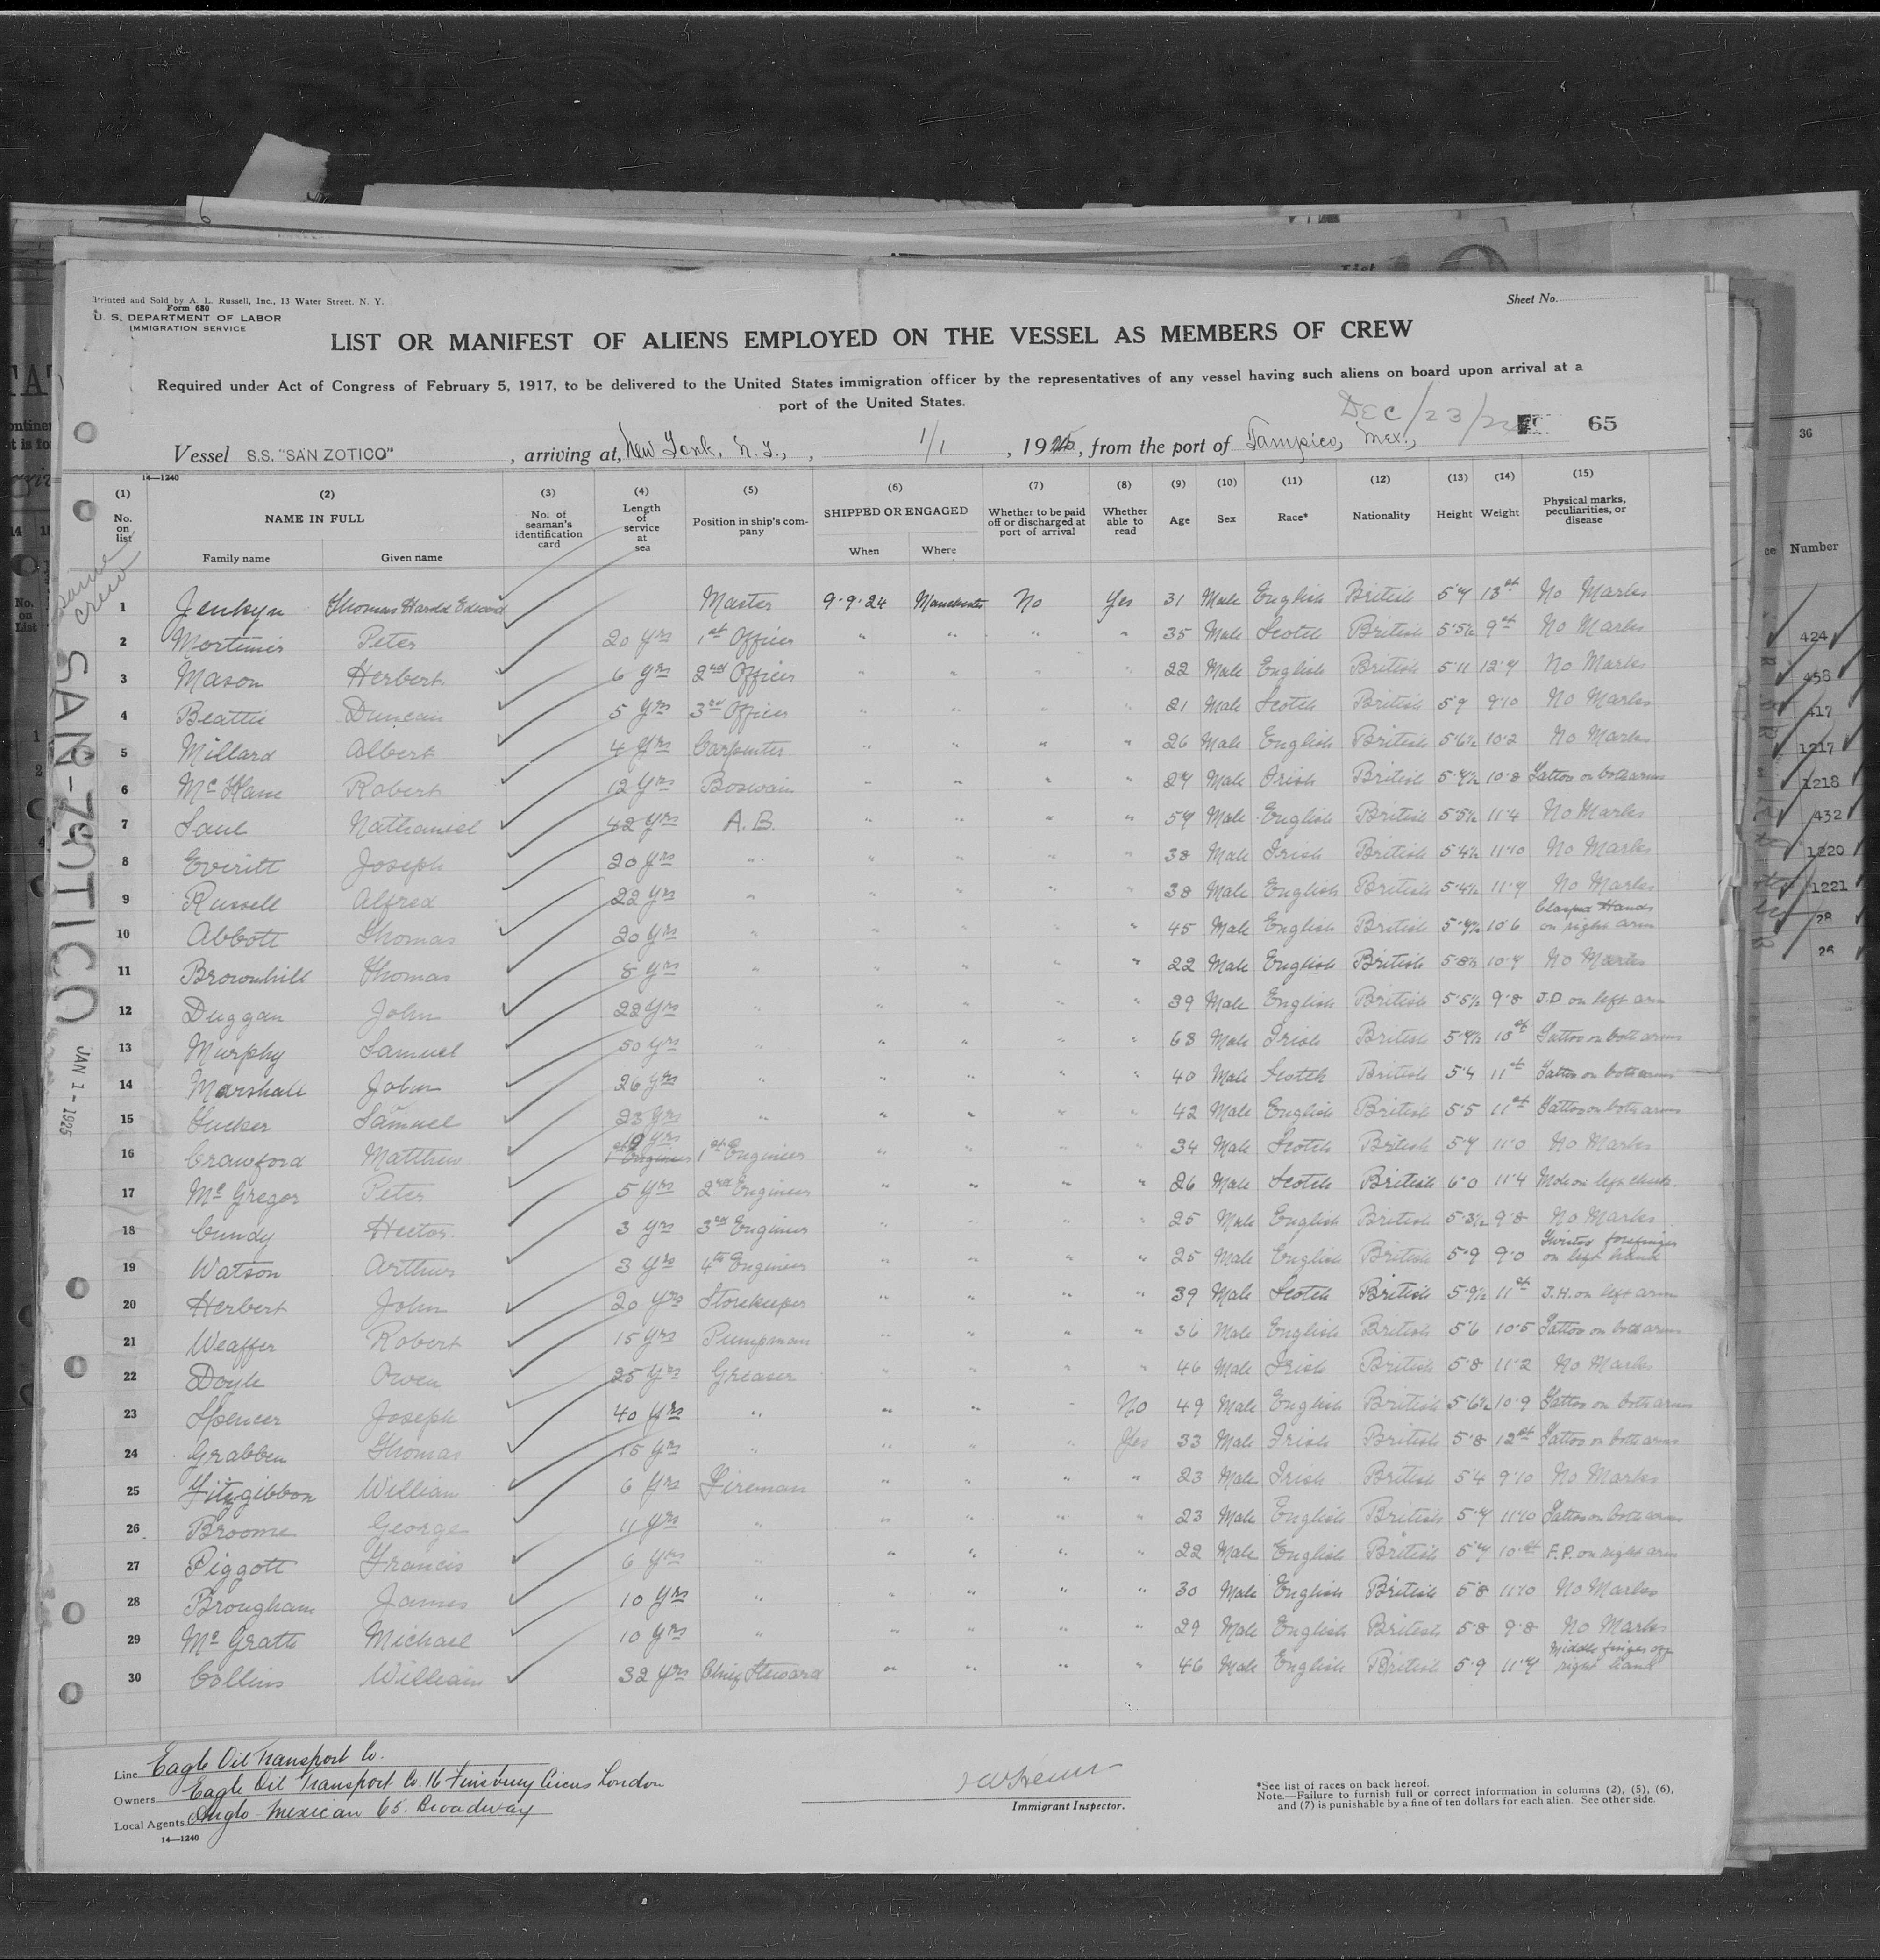 Printed and Sold by A. L. Russell, Inc., 13 Water Street, N. Y.
Form 680
U. S. DEPARTMENT OF LABOR
IMMIGRATION SERVICE
Sheet No.
LIST OR MANIFEST OF ALIENS EMPLOYED ON THE VESSEL AS MEMBERS OF CREW
Required under Act of Congress of February 5, 1917, to be delivered to the United States immigration officer by the representatives of any vessel having such aliens on board upon arrival at a
port of the United States.
DEC/23/24
65
Vessel S.S. "SAN ZOTICO", arriving at, New York, N.Y., 1/1, 1925, from the port of Tampico, Mex.,
14—1240
(1) (2) (3) (4) (5) (6) (7) (8) (9) (10) (11) (12) (13) (14) (15)
No. on list NAME IN FULL No. of seaman's identification card Length of service at sea Position in ship's company SHIPPED OR ENGAGED Whether to be paid off or discharged at port of arrival Whether able to read Age Sex Race* Nationality Height Weight Physical marks, peculiarities, or disease
Family name Given name When Where
same crew
SAN-ZOTICO
JAN 1 - 1925
1 Jenkyn Thomas Harold Edward Master 9.9.24 Manchester No Yes 31 Male English British 5.7 13st No Marks
2 Mortimer Peter 20 yrs 1st Officer " " " " 35 Male Scotch British 5.5½ 9st No Marks
3 Mason Herbert 6 yrs 2nd Officer " " " " 22 Male English British 5.11 12.7 No Marks
4 Beattie Duncan 5 yrs 3rd Officer " " " " 21 Male Scotch British 5.9 9.10 No Marks
5 Millard Albert 4 yrs Carpenter " " " " 26 Male English British 5.6½ 10.2 No Marks
6 Robert 12 yrs Boswain " " " " 27 Male Irish British 5.7½ 10.8 Tattoo on both arms
7 Saul Nathaniel 42 yrs A.B. " " " " 59 Male English British 5.5½ 11.4 No Marks
8 Everitt Joseph 20 yrs " " " " " 38 Male Irish British 5.4½ 11.10 No Marks
9 Russell Alfred 22 yrs " " " " " 38 Male English British 5.4½ 11.7 No Marks
10 Abbott Thomas 20 yrs " " " " " 45 Male English British 5.7½ 10.6 Clasped Hands on right arm
11 Brownhill Thomas 8 yrs " " " " " 22 Male English British 5.8½ 10.7 No Marks
12 Duggan John 22 yrs " " " " " 39 Male English British 5.5½ 9.8 J.D on left arm
13 Murphy Samuel 50 yrs " " " " " 63 Male Irish British 5.7½ Tattoo on both arms
14 Marshall John 26 yrs " " " " " 40 Male Scotch British 5.4 11st Tattoo on both arms
15 Tucker Samuel 23 yrs " " " " " 42 Male English British 5.5 11st Tattoo on both arms
16 Crawford Matthew 10 yrs 1st Engineer " " " " 34 Male Scotch British 5.7 11.0 No Marks
17 Mc Gregor Peter 5 yrs 2nd Engineer " " " " 26 Male Scotch British 6.0 11.4 Mole on left cheek.
18 Cundy Hector 3 yrs 3rd Engineer " " " " 25 Male English British 5.3½ 9.8 No Marks
19 Watson Arthur 3 yrs 4th Engineer " " " " 25 Male English British 5.9 9.0 Twisted forefinger on left hand
20 Herbert John 20 yrs Storekeeper " " " " 39 Male Scotch British 5.9½ 11st J.H. on left arm
21 Weaffer Robert 15 yrs Pumpman " " " " 36 Male English British 5.6 10.5 Tattoo on both arms
22 Doyle Owen 25 yrs Greaser " " " " 46 Male Irish British 5.8 11.2 No Marks
23 Spencer Joseph 40 yrs " " " " No 49 Male English British 5.6½ 10.9 Tattoo on both arms
24 Thomas 15 yrs " " " " Yes 33 Male Irish British 5.8 12st Tattoo on both arms
25 Fitzgibbon William 6 yrs Fireman " " " " 23 Male Irish British 5.4 9.10 No Marks
26 Broome George 11 yrs " " " " " 23 Male English British 5.7 11.10 Tattoo on both arms
27 Piggott Francis 6 yrs " " " " " 22 Male English British 5.7 10.st F.P. on right arm
28 Brougham James 10 yrs " " " " " 30 Male English British 5.8 11.10 No Marks
29 Mc Grath Michael 10 yrs " " " " " 29 Male English British 5.8 9.8 No Marks
30 Collins William 32 yrs Chief Steward " " " " 46 Male English British 5.9 11.7 Middle finger off right hand
Line Eagle Oil Transport Co.
Owners Eagle Oil Transport Co. 16 Finsbury Circus London
Local Agents Anglo-Mexican 65. Broadway
14—1240
Immigrant Inspector.
*See list of races on back hereof.
Note.—Failure to furnish full or correct information in columns (2), (5), (6),
and (7) is punishable by a fine of ten dollars for each alien. See other side.
36
Number
424
458
417
1217
1218
432
1220
1221
28